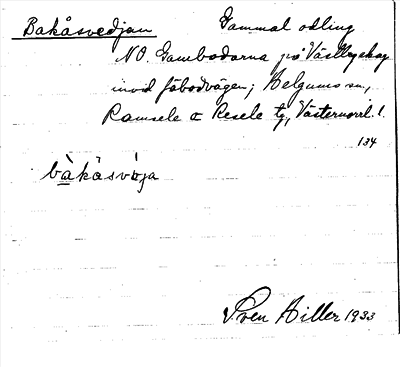 Bakåsvedjan Gammal odling
NO. Gambodarna på Västbygdens
invid fäbodvägen; Helgums sn,
Ramsele o Resele tg, Västernorrl. l.
134
bàkåsvὶja
Sven Hiller 1933